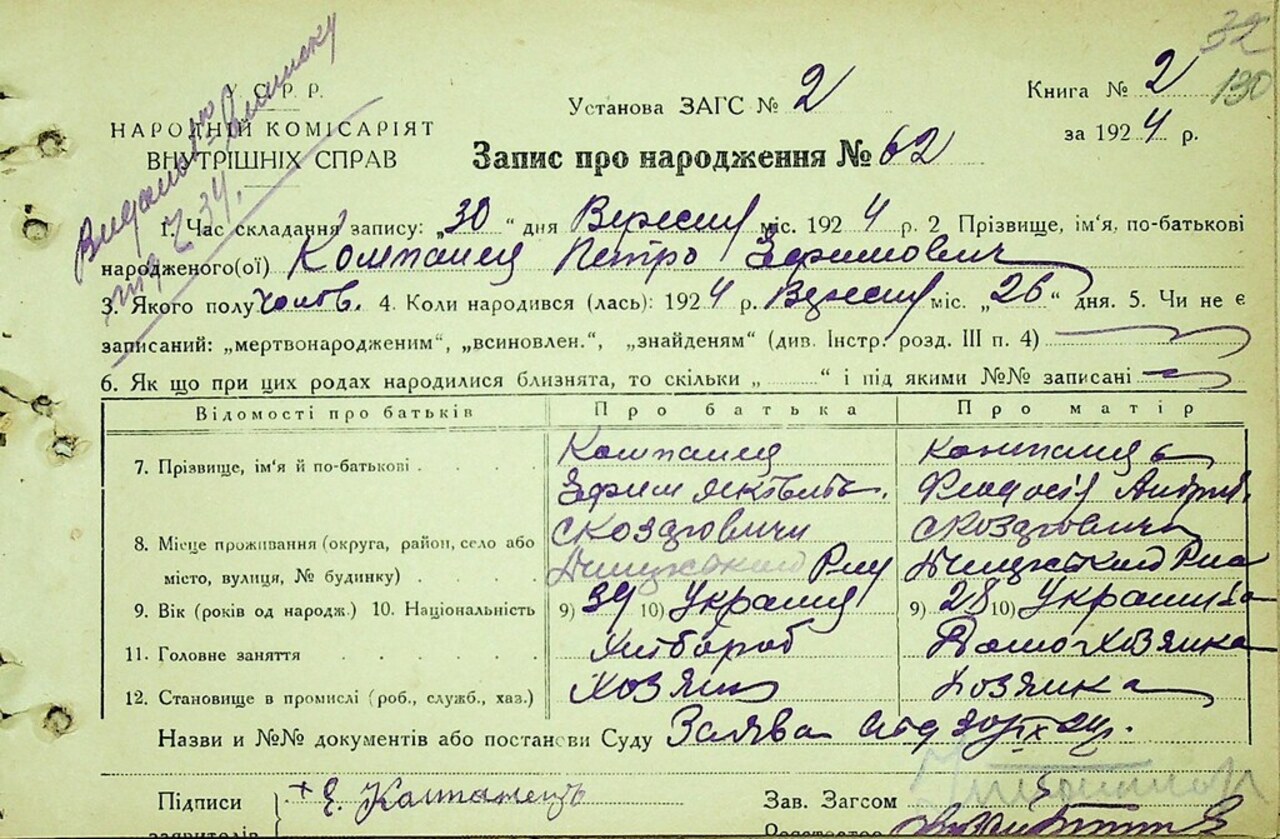 32
130
У. С. Р. Р.
НАРОДНІЙ КОМІСАРІЯТ
ВНУТРІШНІХ СПРАВ
Установа ЗАГС № 2
Книга № 2
за 1924 р.
Запис про народження № 62
1. Час складання запису: „30“ дня Вересня міс. 1924 р. 2 Прізвище, ім‘я, по-батькові
народженого(ої) Компанец Петро Ефимович
3. Якого полу чолов. 4. Коли народився (лась): 1924 р. Вересня міс. „26“ дня. 5. Чи не є
записаний: „мертвонародженим“, „всиновлен.“, „знайденям“ (див. Інстр. розд. III п. 4)
6. Як що при цих родах народилися близнята, то скільки „ “ і під якими №№ записані
Відомості про батьків Про батька Про матір
7. Прізвище, ім‘я й по-батькові Компанец Компанець
Ефим Андрив.
8. Місце проживання (округа, район, село або
місто, вулиця, № будинку)
9. Вік (років од народж.) 10. Національність 9) 39 10) Украинец 9) 28 10) Украинка
11. Головне заняття Хлібороб Домохозяйка
12. Становище в промислі (роб., служб., хаз.) Хозяин Хозяйка
Назви и №№ документів або постанови Суду Заява від 30/IX 24р.
Підписи + Е. Компанець
Зав. Загсом